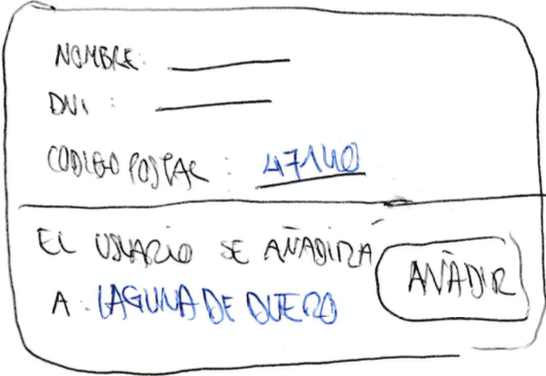 NOMBRE:
DNI :
CODIGO POSTAL : 47140
EL USUARIO SE AÑADIRÁ
A : LAGUNA DE DUERO
AÑADIR